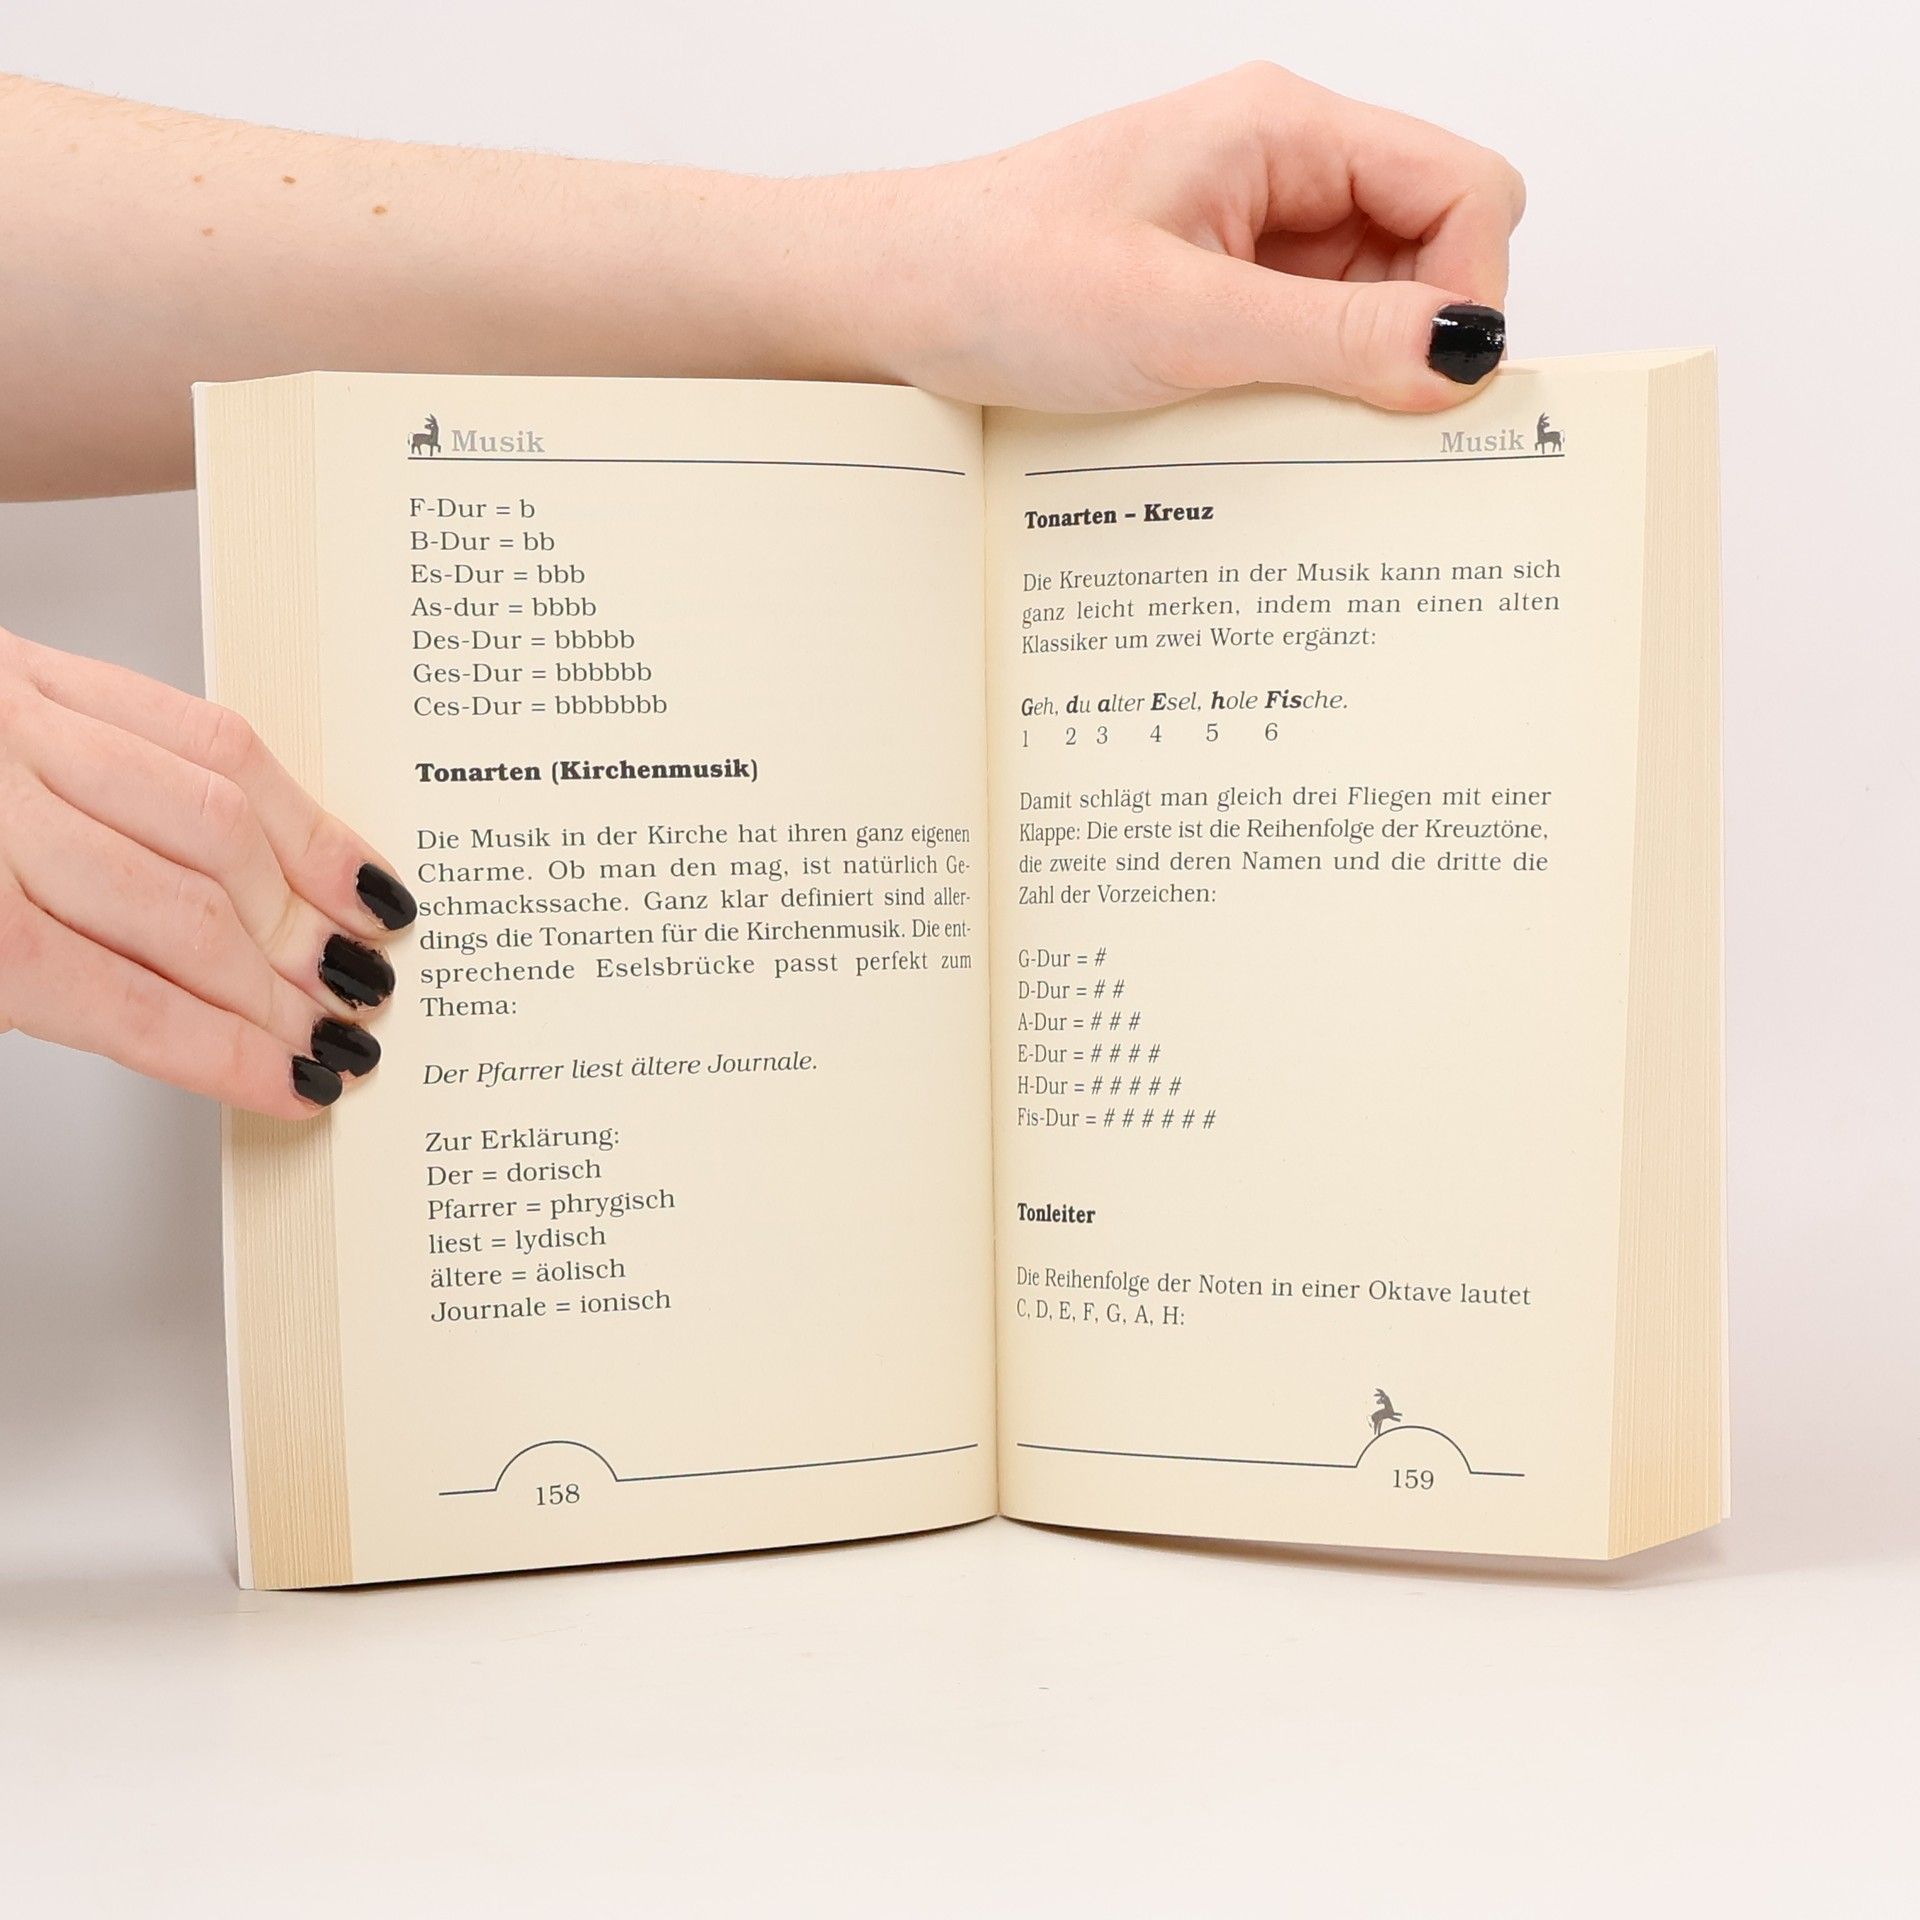 Musik
F-Dur = b
B-Dur = bb
Es-Dur = bbb
As-dur = bbbb
Des-Dur = bbbbb
Ges-Dur = bbbbbb
Ces-Dur = bbbbbbb
Tonarten (Kirchenmusik)
Die Musik in der Kirche hat ihren ganz eigenen
Charme. Ob man den mag, ist natürlich Ge-
schmackssache. Ganz klar definiert sind aller-
dings die Tonarten für die Kirchenmusik. Die ent-
sprechende Eselsbrücke passt perfekt zum
Thema:
Der Pfarrer liest ältere Journale.
Zur Erklärung:
Der = dorisch
Pfarrer = phrygisch
liest = lydisch
ältere = äolisch
Journale = ionisch
158
Musik
Tonarten – Kreuz
Die Kreuztonarten in der Musik kann man sich
ganz leicht merken, indem man einen alten
Klassiker um zwei Worte ergänzt:
Geh, du alter Esel, hole Fische.
1 2 3 4 5 6
Damit schlägt man gleich drei Fliegen mit einer
Klappe: Die erste ist die Reihenfolge der Kreuztöne,
die zweite sind deren Namen und die dritte die
Zahl der Vorzeichen:
G-Dur = #
D-Dur = # #
A-Dur = # # #
E-Dur = # # # #
H-Dur = # # # # #
Fis-Dur = # # # # # #
Tonleiter
Die Reihenfolge der Noten in einer Oktave lautet
C, D, E, F, G, A, H:
159